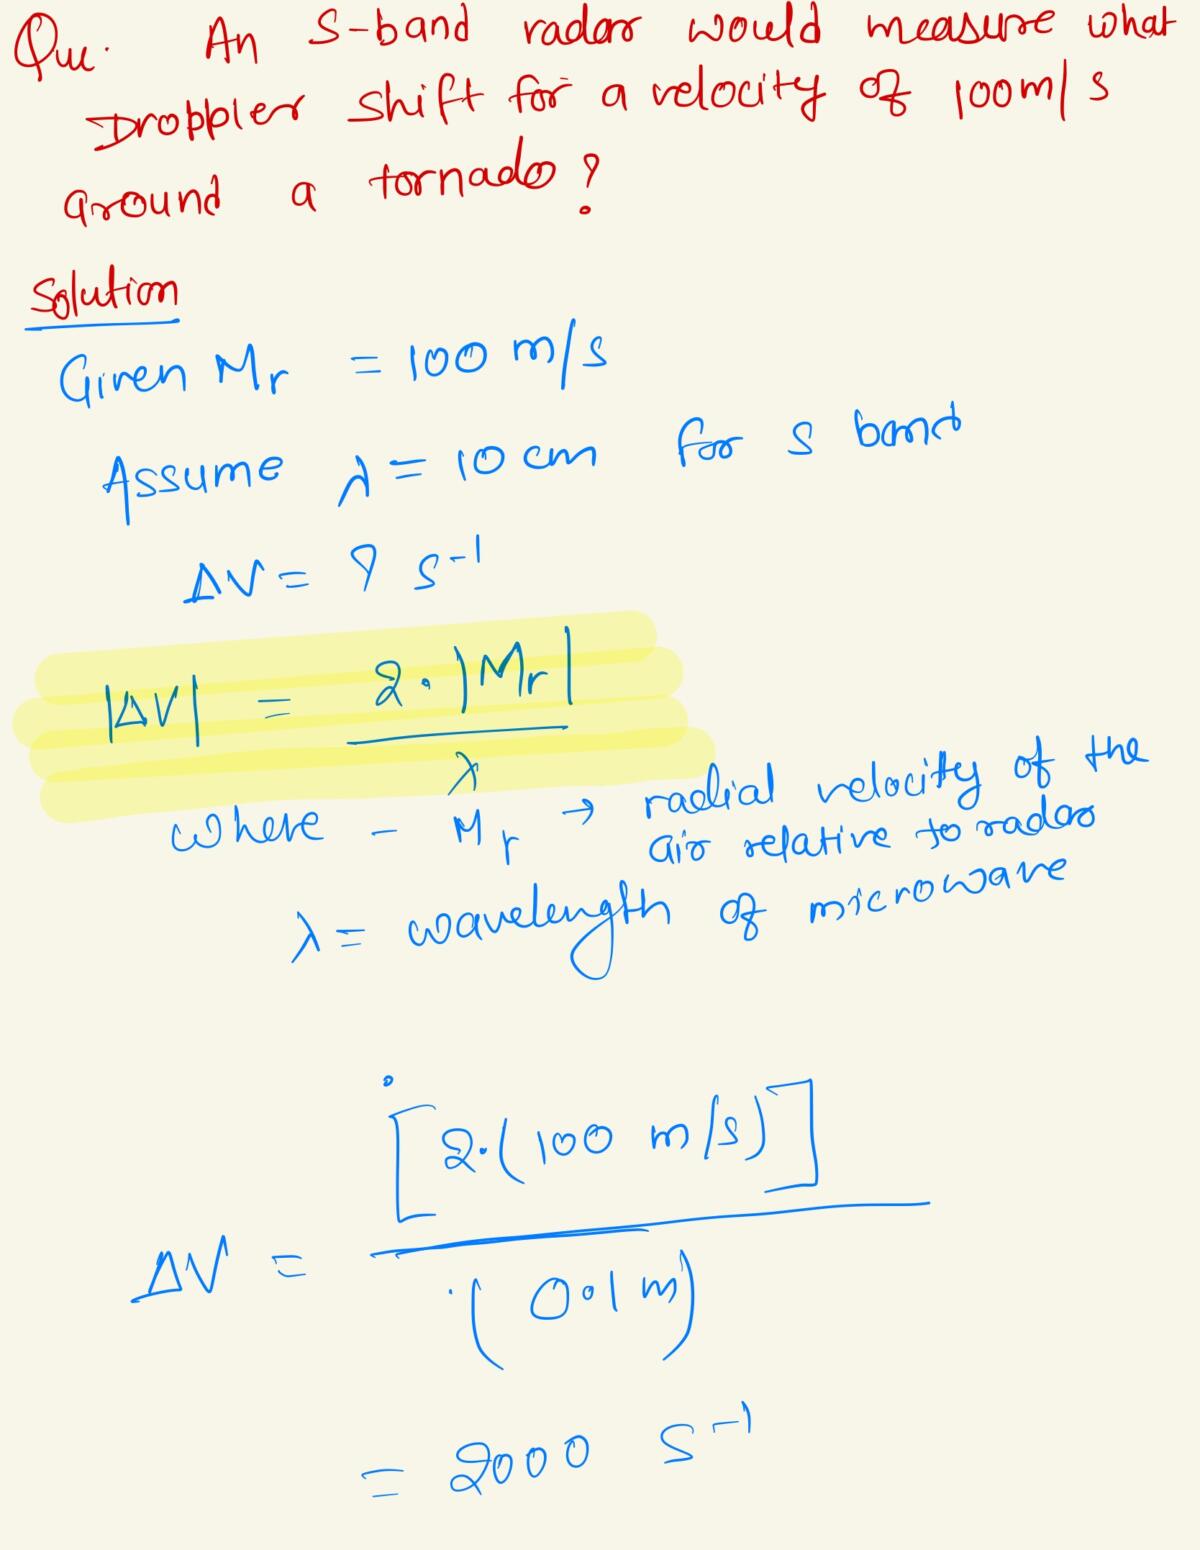 Que. An S-band radar would measure what
Droppler shift for a velocity of 100m/s
around a tornado?
Solution
Given Mr = 100 m/s
Assume λ = 10 cm for s band
ΔV = ? s⁻¹
|ΔV| = 2.|Mr| / λ
where - Mr → radial velocity of the
air relative to radar
λ = wavelength of microwave
ΔV = [2.(100 m/s)] / (0.1 m)
= 2000 S⁻¹